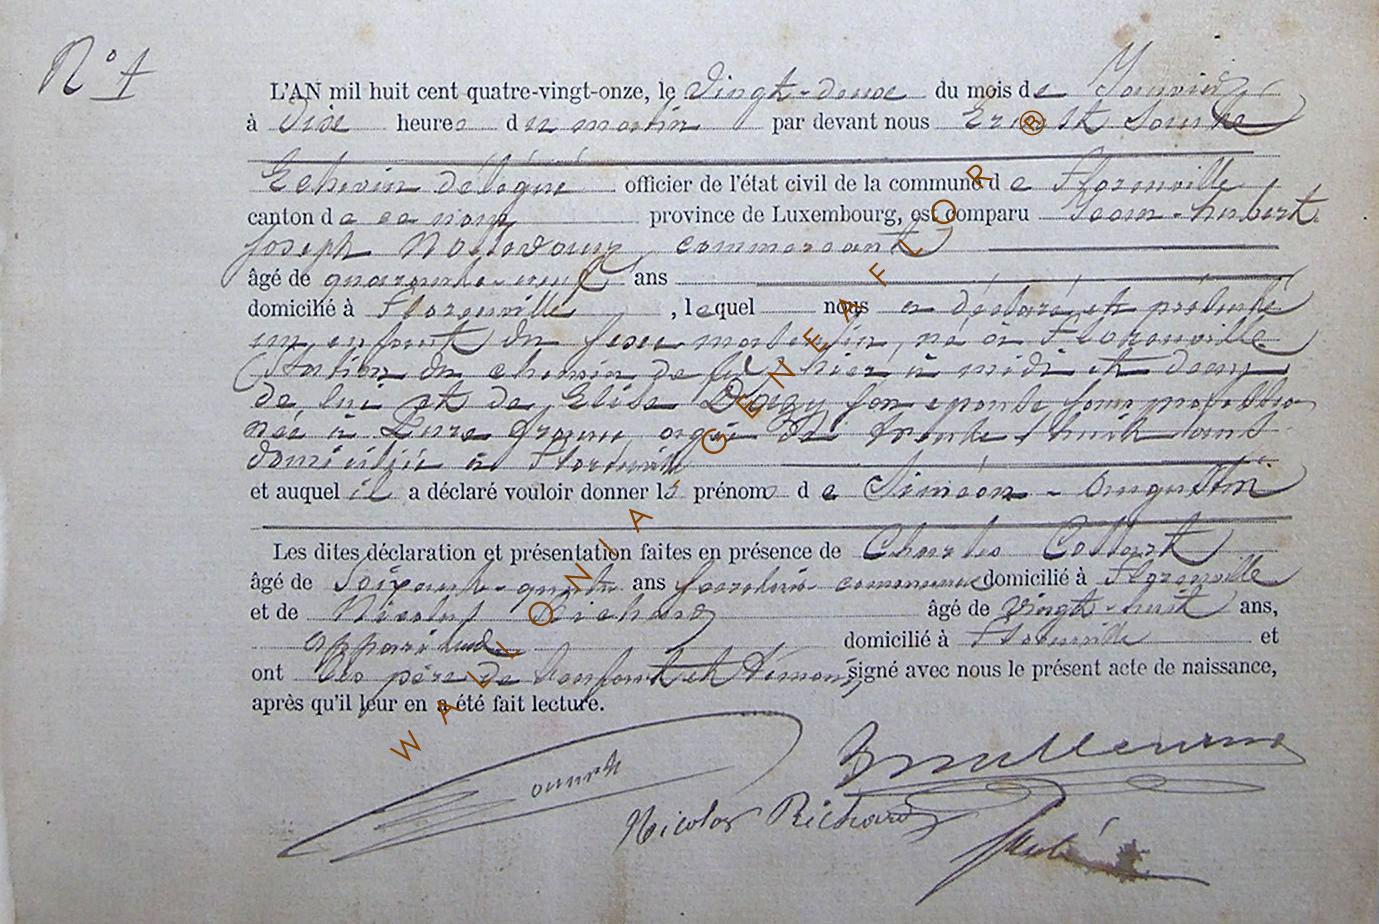 N° 1
L'AN mil huit cent quatre-vingt-onze, le vingt-deux du mois de Janvier
à dix heures du matin par devant nous Ernest
Echevin délégué officier de l'état civil de la commune de Florenville
canton de ce nom province de Luxembourg, est comparu Jean-hubert
Joseph commercant
âgé de quarante-neuf ans
domicilié à Florenville, lequel nous a déclaré et présenté
un enfant du sexe masculin, né à Florenville
(Station du chemin de fer) hier à midi et demi
de lui et de Elise son epouse sans profession
née à agée de trente-huit ans
domiciliée à Florenville
et auquel il a déclaré vouloir donner les prénoms de Siméon-Augustin
Les dites déclaration et présentation faites en présence de Charles
âgé de Soixante-quatre ans domicilié à Florenville
et de Nicolas Richard âgé de vingt-huit ans,
domicilié à Florenville et
ont les père de l'enfant et témoins signé avec nous le présent acte de naissance,
après qu'il leur en a été fait lecture.
Nicolas Richard
WALLONIA GENEAFLOR ®